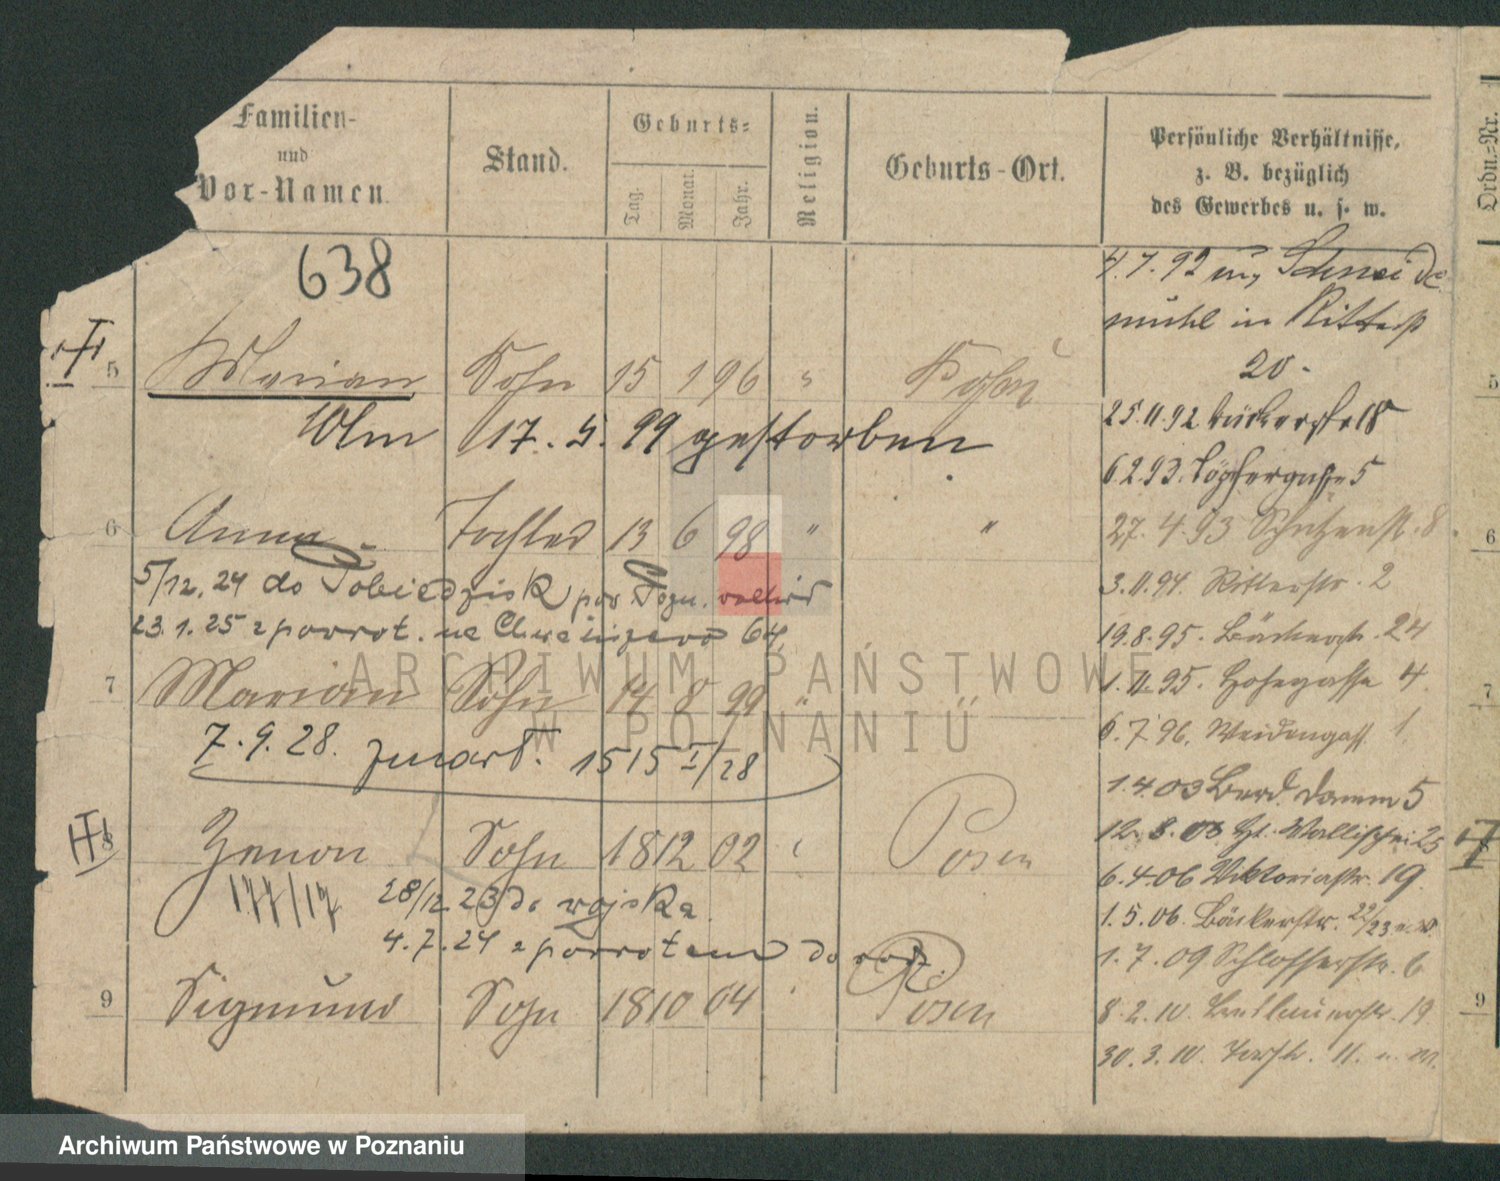 Familien-
und
Vor-Namen.
Stand.
Geburts-
Tag. Monat. Jahr.
Religion.
Geburts-Ort.
Persönliche Verhältnisse,
z. B. bezüglich
des Gewerbes u. s. w.
Ordn.-Nr.
638
5 Marian Sohn 15 1 96 "
17. 5. 99 gestorben
6 Anna Tochter 13 6 98 " "
5/12. 24 do Pobiedzisk
23.1.25 z powrot. na 64
7 Marian Sohn 14 8 99 "
7.9.28. zmarł. 1515 I/28
8 Zenon Sohn 18 12 02 Posen
177/17 28/12 23 do wojska
4.7.24 z powrotem do
9 Sigmund Sohn 18 10 04 Posen
4.7.92 Schneide
mühl in Ritterstr
20.
25.11.92 18
6.2.93. Töpfergasse 5
27.4.93 Schützenstr. 8
3.11.94. Ritterstr. 2
19.8.95. Bäckerstr. 24
1.11.95. Hohegasse 4
6.7.96. Weidengass 1
1.4.03 Berd. damm 5
12.8.03 Wallischei 25
6.4.06 Viktoriastr. 19
1.5.06. Bäckerstr. 22/23
1.7.09 Schlosserstr. 6
8.2.10. 19
30.3.10. 11.
5
6
7
8
9
ARCHIWUM PAŃSTWOWE
W POZNANIU
Archiwum Państwowe w Poznaniu